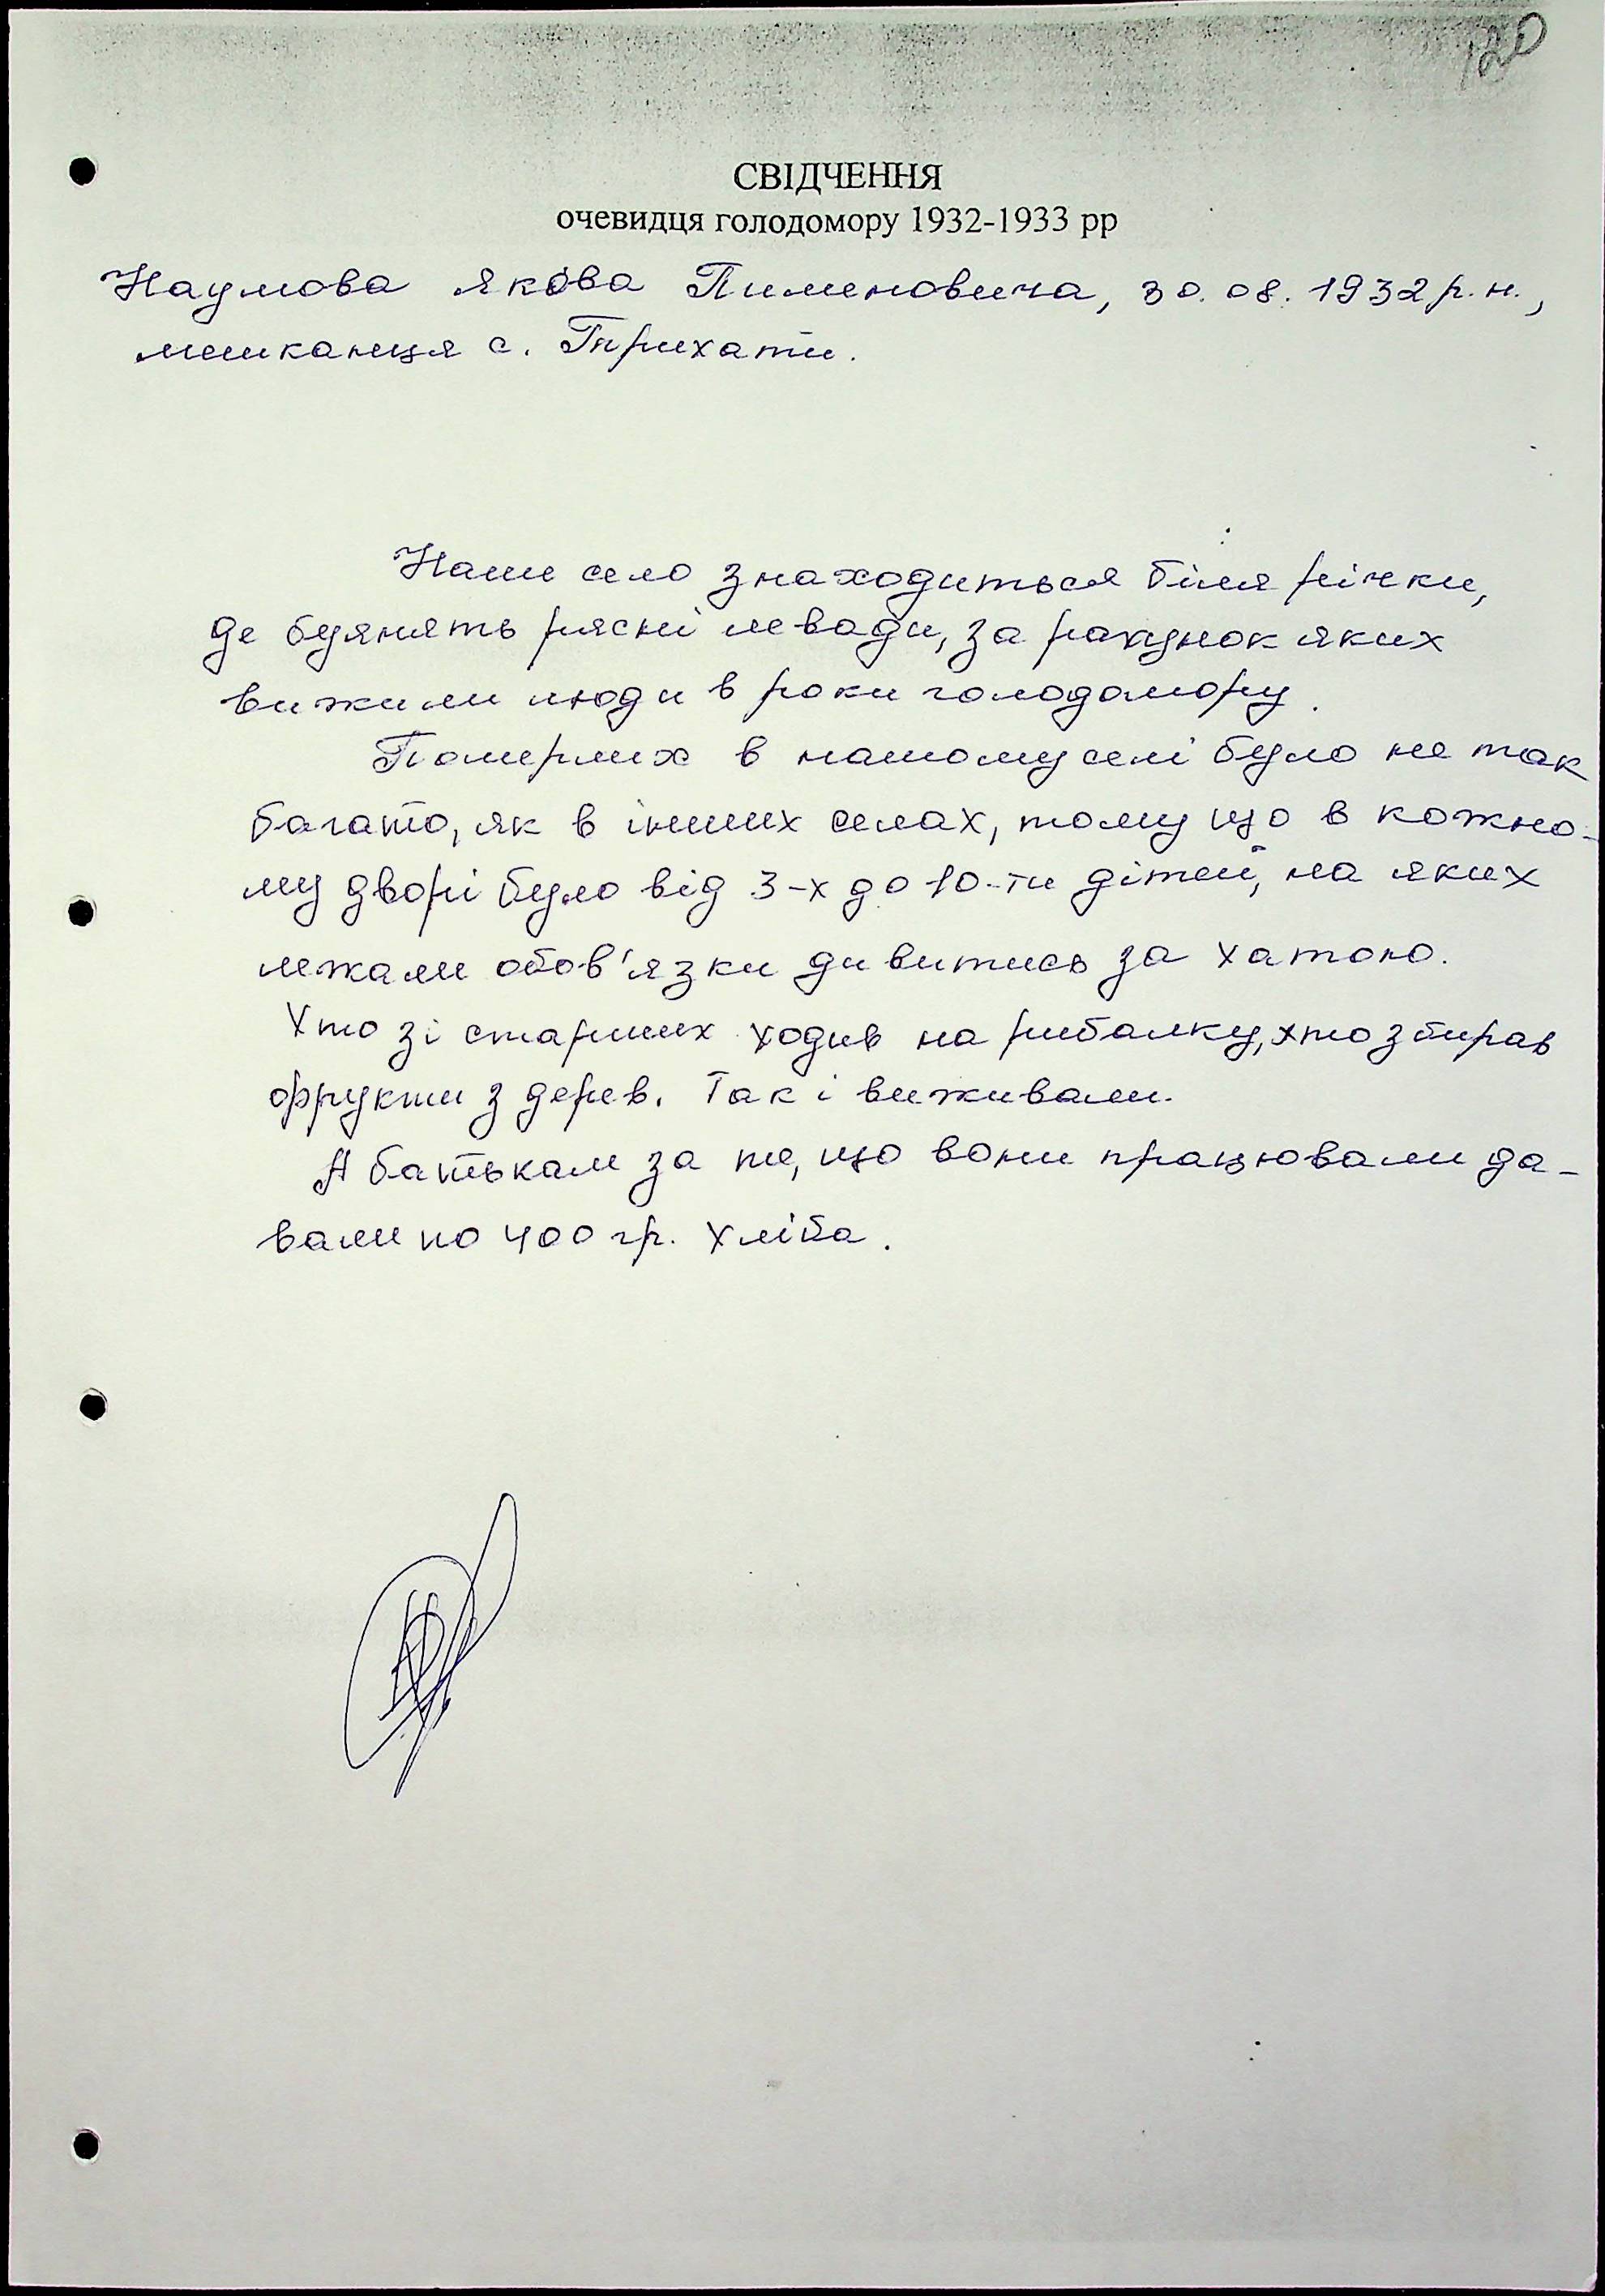 120
СВІДЧЕННЯ
очевидця голодомору 1932-1933 рр
Наумова Якова Пименовича, 30.08.1932 р.н.,
мешканця с. Трихати.
Наше село знаходиться біля річки,
де буянять рясні левади, за рахунок яких
вижили люди в роки голодомору.
Померлих в нашому селі було не так
багато, як в інших селах, тому що в кожно-
му дворі було від 3-х до 10-ти дітей, на яких
лежали обов'язки дивитись за хатою.
Хто зі старших ходив на рибалку, хто збирав
фрукти з дерев. Так і виживали.
А батькам за те, що вони працювали да-
вали по 400 гр. хліба.